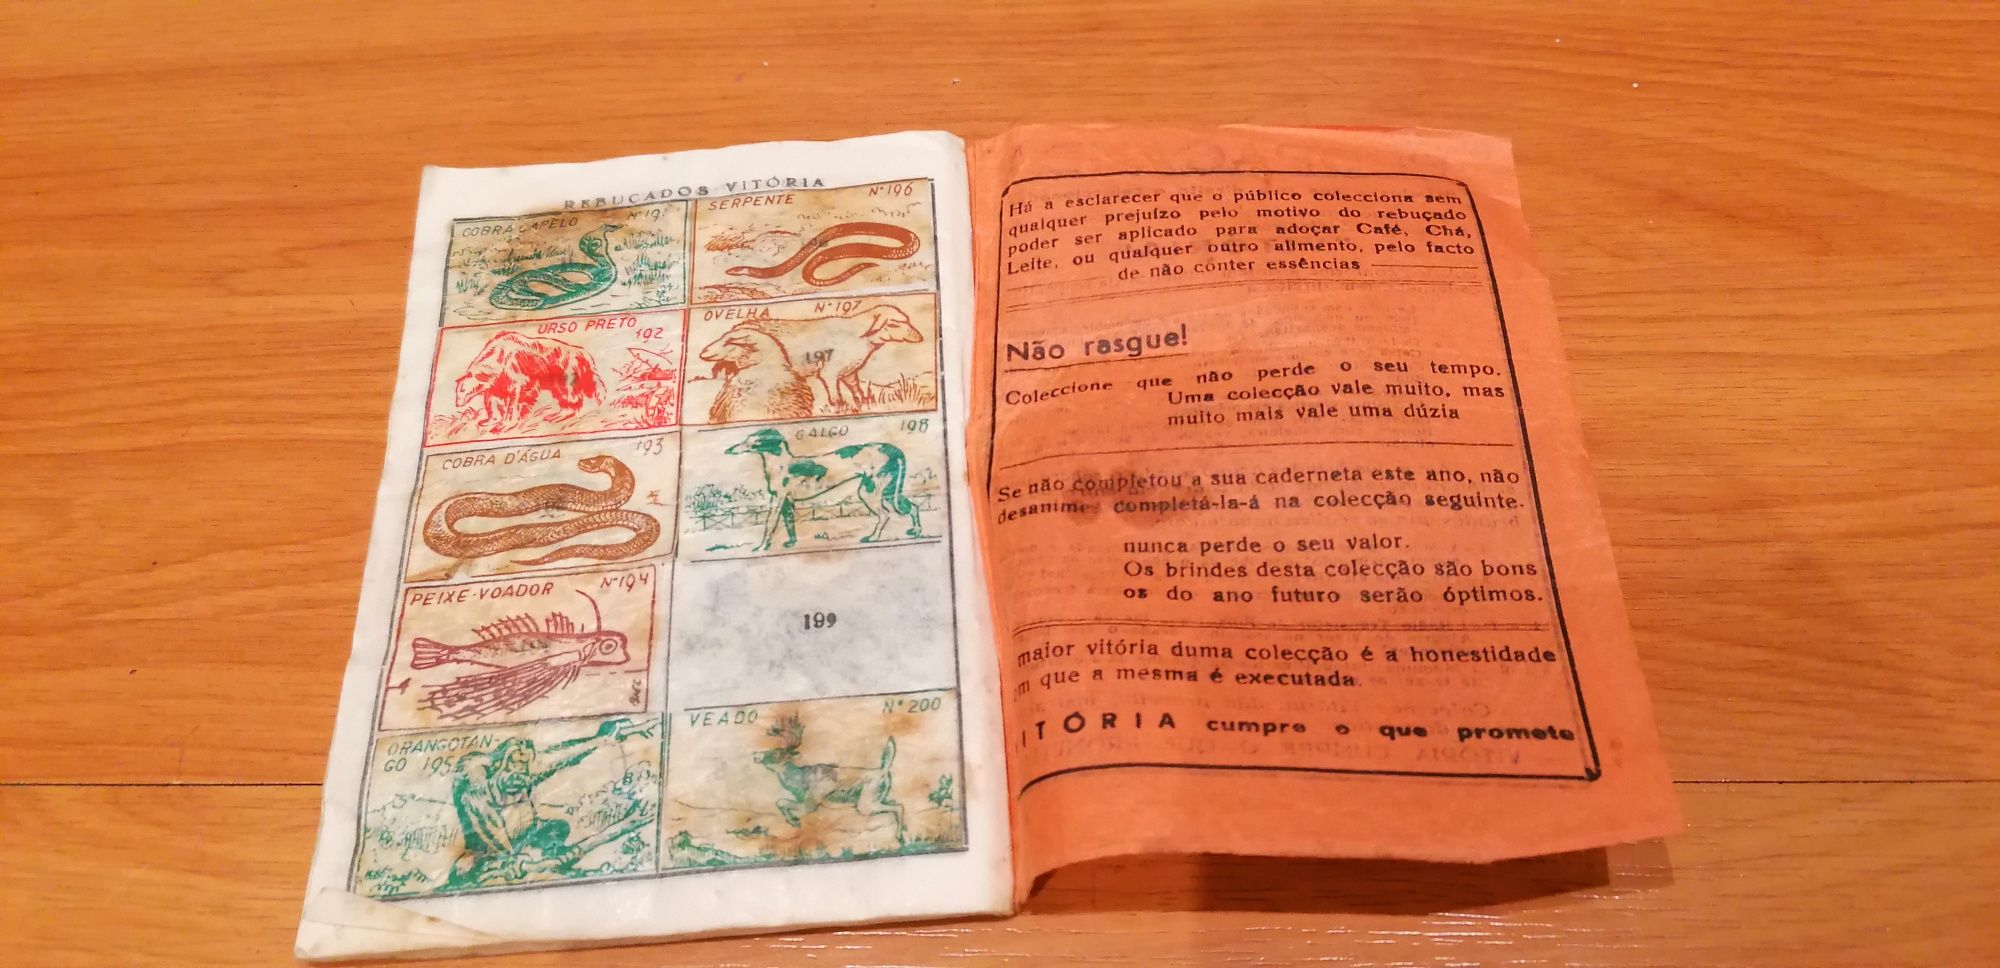 REBUÇADOS VITÓRIA
COBRA CAPELO Nº 19
SERPENTE Nº 196
URSO PRETO 192
OVELHA Nº 197
197
COBRA D'ÁGUA 193
GALGO 198
PEIXE-VOADOR Nº 194
199
ORANGOTAN-
GO 195
VEADO Nº 200
Há a esclarecer que o público colecciona sem
qualquer prejuízo pelo motivo do rebuçado
poder ser aplicado para adoçar Café, Chá,
Leite, ou qualquer outro alimento, pelo facto
de não conter essências
Não rasgue!
Coleccione que não perde o seu tempo.
Uma colecção vale muito, mas
muito mais vale uma dúzia
Se não completou a sua caderneta este ano, não
desanime, completá-la-á na colecção seguinte.
nunca perde o seu valor.
Os brindes desta colecção são bons
os do ano futuro serão óptimos.
maior vitória duma colecção é a honestidade
m que a mesma é executada.
ITÓRIA cumpre o que promete